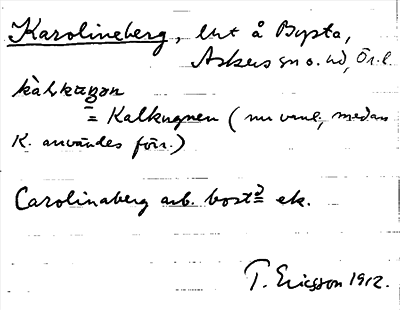 Karolineberg, lht å Bysta,
Askers sn o. hd, Ör. l.
kàlkùgnən
= Kalkugnen (nu vanl., medan
K. användes förr.)
Carolinaberg arb. bostr ek.
T. Ericsson 1912.